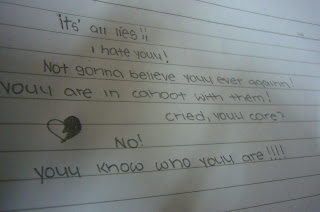 its' all lies!!
i hate youu!
Not gonna believe youu ever againn!
youu are in cahoot with them!
cried, youu care?
No!
youu know who youu are !!!!